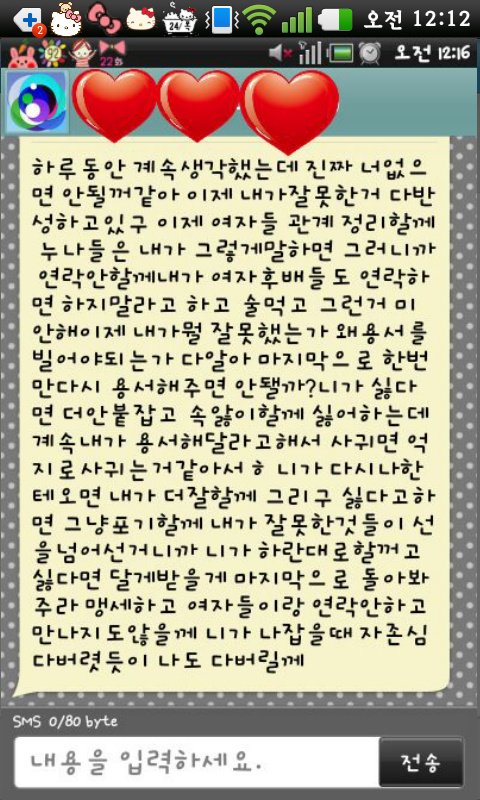 2
24/폭
오전 12:12
92
22화
오전 12:16
하루동안 계속생각했는데 진짜 너없으
면 안될꺼같아 이제 내가잘못한거 다반
성하고있구 이제 여자들 관계 정리할께
누나들은 내가 그렇게말하면 그러니까
연락안할께내가 여자후배들도 연락하
면 하지말라고 하고 술먹고 그런거 미
안해이제 내가뭘 잘못했는가 왜용서를
빌어야되는가 다알아 마지막으로 한번
만다시 용서해주면 안됄까?니가 싫다
면 더안붙잡고 속앓이할께 싫어하는데
계속내가 용서해달라고해서 사귀면 억
지로사귀는거같아서ㅎ 니가 다시나한
테오면 내가 더잘할께 그리구 싫다고하
면 그냥포기할께 내가 잘못한것들이 선
을넘어선거니까 니가 하란대로할꺼고
싫다면 달게받을게 마지막으로 돌아봐
주라 맹세하고 여자들이랑 연락안하고
만나지도않을께 니가 나잡을때 자존심
다버렷듯이 나도 다버릴께
SMS 0/80 byte
내용을 입력하세요.
전송